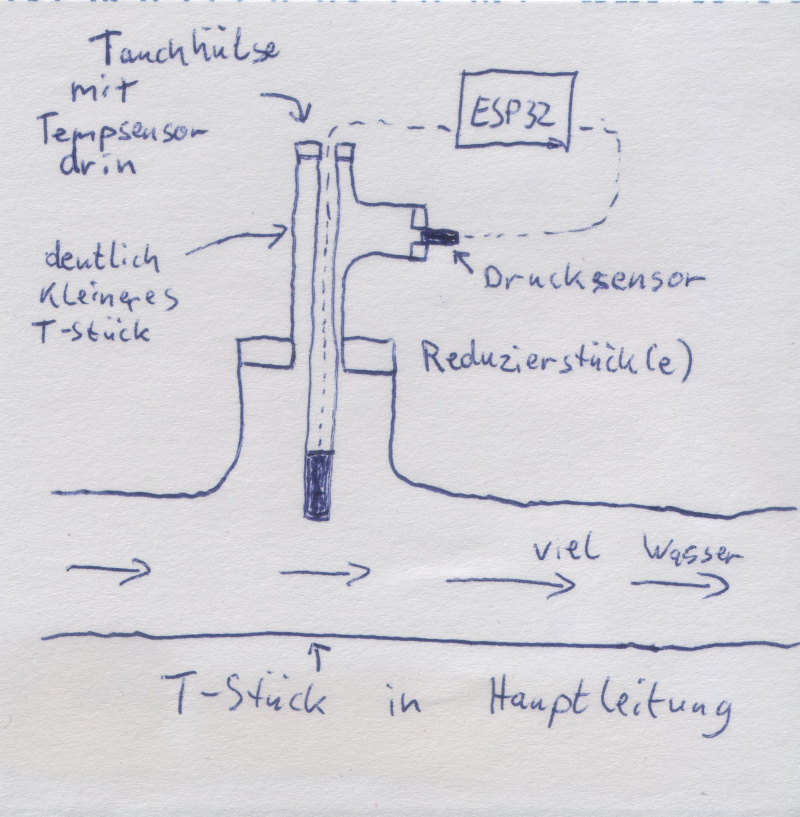 Tauchhülse
mit
Tempsensor
drin
ESP32
deutlich
kleineres
T-Stück
Drucksensor
Reduzierstück(e)
viel Wasser
T-Stück in Hauptleitung